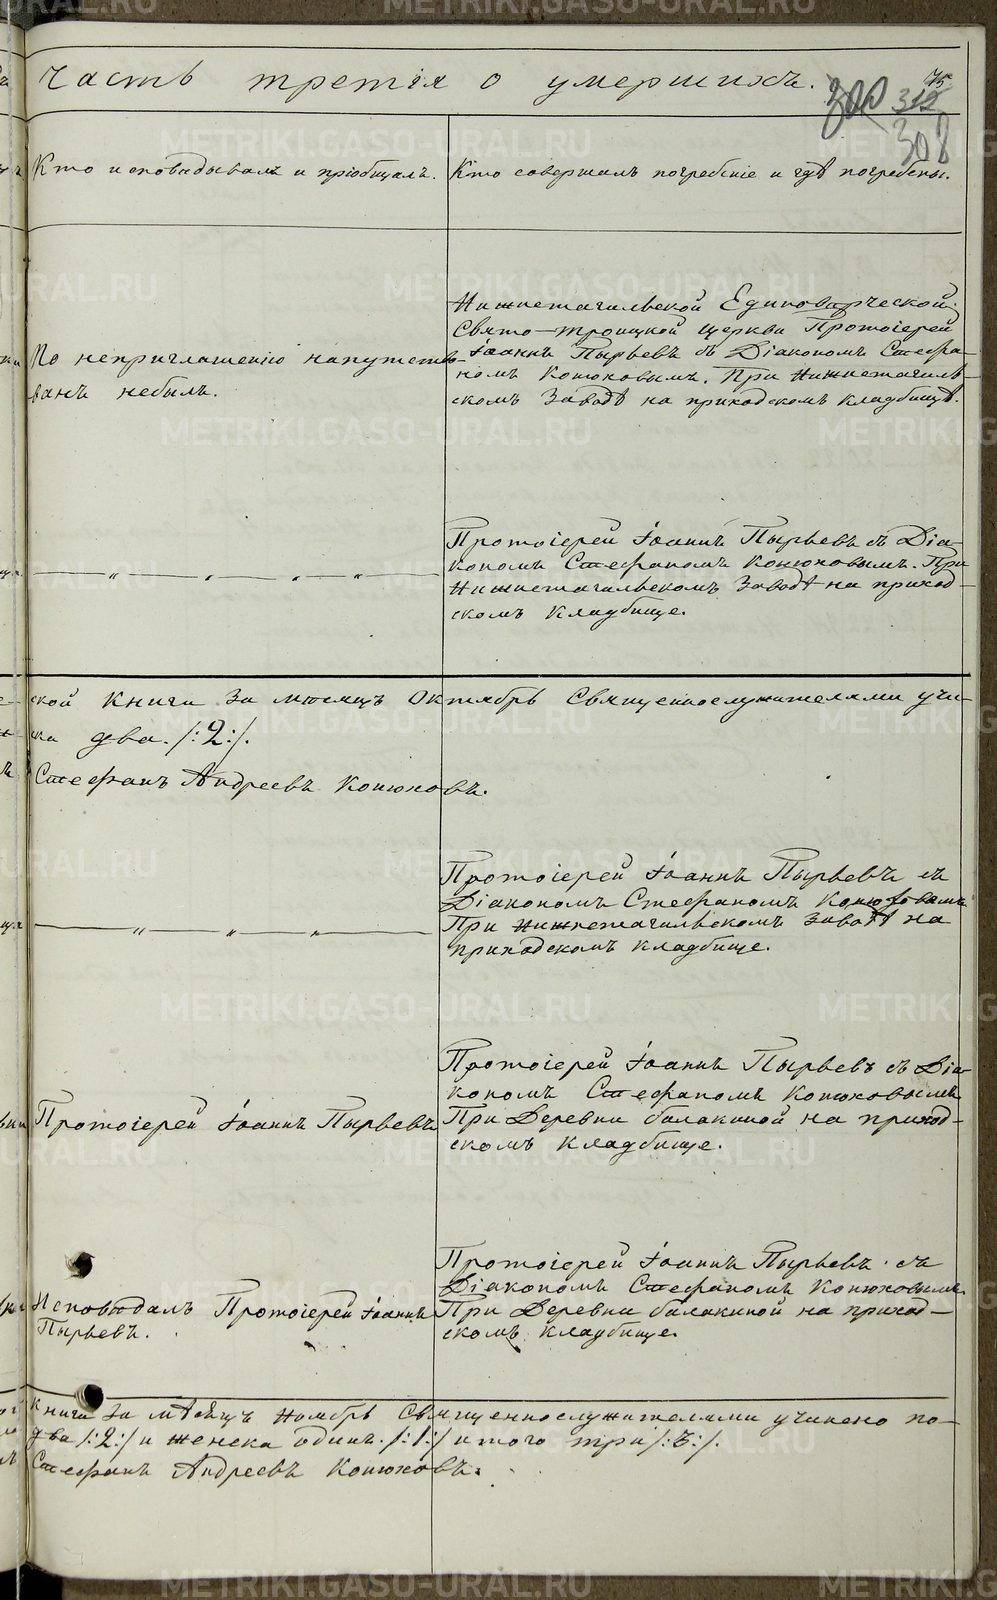 Часть третія о умершихъ.
75
300 312
308
Кто исповѣдывалъ и пріобщалъ.
Кто совершалъ погребеніе и гдѣ погребены.
Нижнетагильской Единовѣрческой
Свято-Троицкой Церкви Протоіерей
Іоаннъ Пырьевъ съ Діакономъ Стефа-
номъ Конюховымъ. При Нижнетагиль-
скомъ Заводѣ на приходскомъ кладбищѣ.
По неприглашенію напутство-
ванъ небылъ.
Протоіерей Іоаннъ Пырьевъ съ Діа-
кономъ Стефаномъ Конюховымъ. При
Нижнетагильскомъ Заводѣ на приход-
скомъ кладбище.
— „ — „ — „ — „ —
ской книги за мѣсяцъ Октябрь Священнослужителями учи-
на два. /:2:/.
Стефанъ Андреевъ Конюховъ.
Протоіерей Іоаннъ Пырьевъ съ
Діакономъ Стефаномъ Конюховымъ
При Нижнетагильскомъ Заводѣ на
приходскомъ кладбище.
— „ — „ — „ —
Протоіерей Іоаннъ Пырьевъ съ Діа-
кономъ Стефаномъ Конюховымъ
При Деревни балакиной на приход-
скомъ кладбище.
Протоіерей Іоаннъ Пырьевъ
Протоіерей Іоаннъ Пырьевъ. съ
Діакономъ Стефаномъ Конюховымъ.
При Деревни балакиной на приход-
скомъ кладбище.
Исповѣдалъ Протоіерей Іоаннъ
Пырьевъ.
книги за мѣсяцъ Ноябрь Священнослужителями учинено по-
два /:2:/ и женска одинъ. /:1:/ итого три /:3:/.
Стефанъ Андреевъ Конюховъ.
METRIKI.GASO-URAL.RU